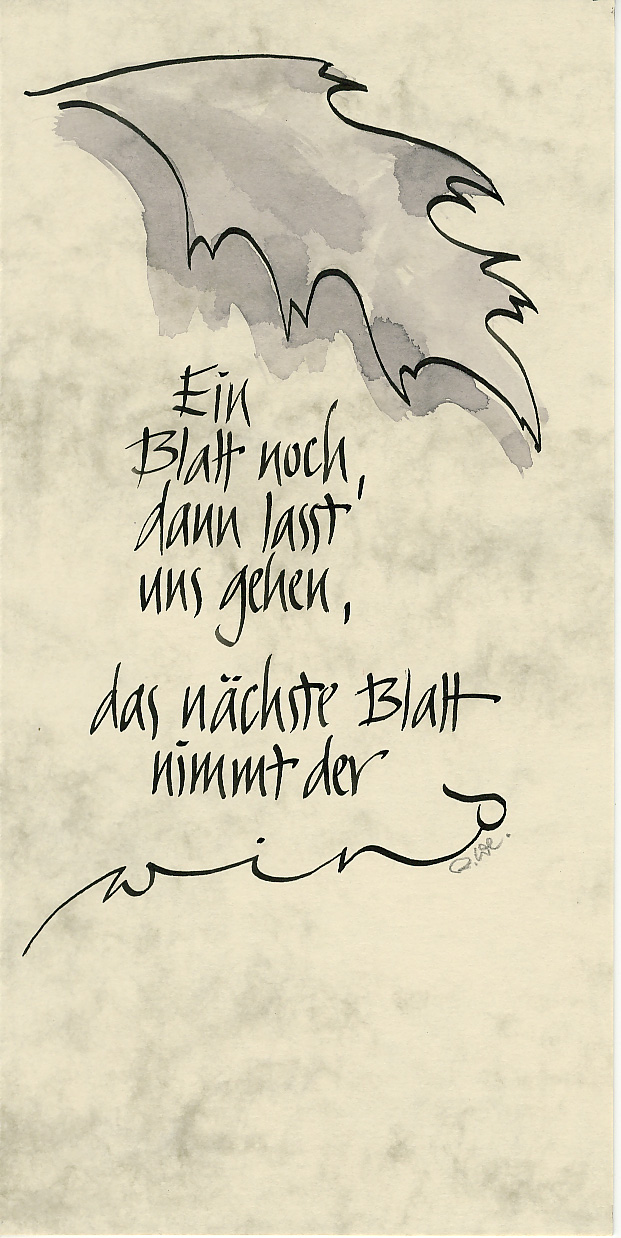 Ein
Blatt noch,
dann lasst
uns gehen,
das nächste Blatt
nimmt der
wind